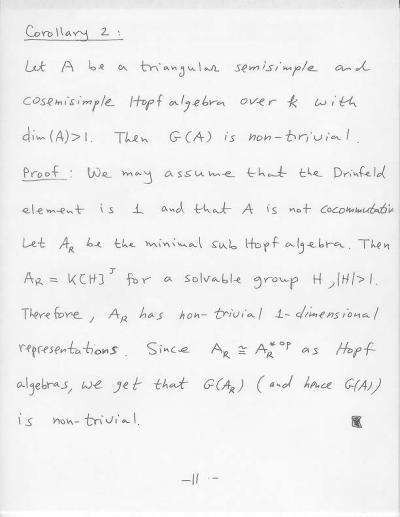 Corollary 2:
Let A be a triangular semisimple and
cosemisimple Hopf algebra over k with
dim(A)>1. Then G(A) is non-trivial.
Proof: We may assume that the Drinfeld
element is 1 and that A is not cocommutativ
Let A_R be the minimal sub Hopf algebra. Then
A_R = K[H]^J for a solvable group H, |H|>1.
Therefore, A_R has non-trivial 1-dimensional
representations. Since A_R ≅ A_R^{*op} as Hopf
algebras, we get that G(A_R) (and hence G(A))
is non-trivial.
-11-